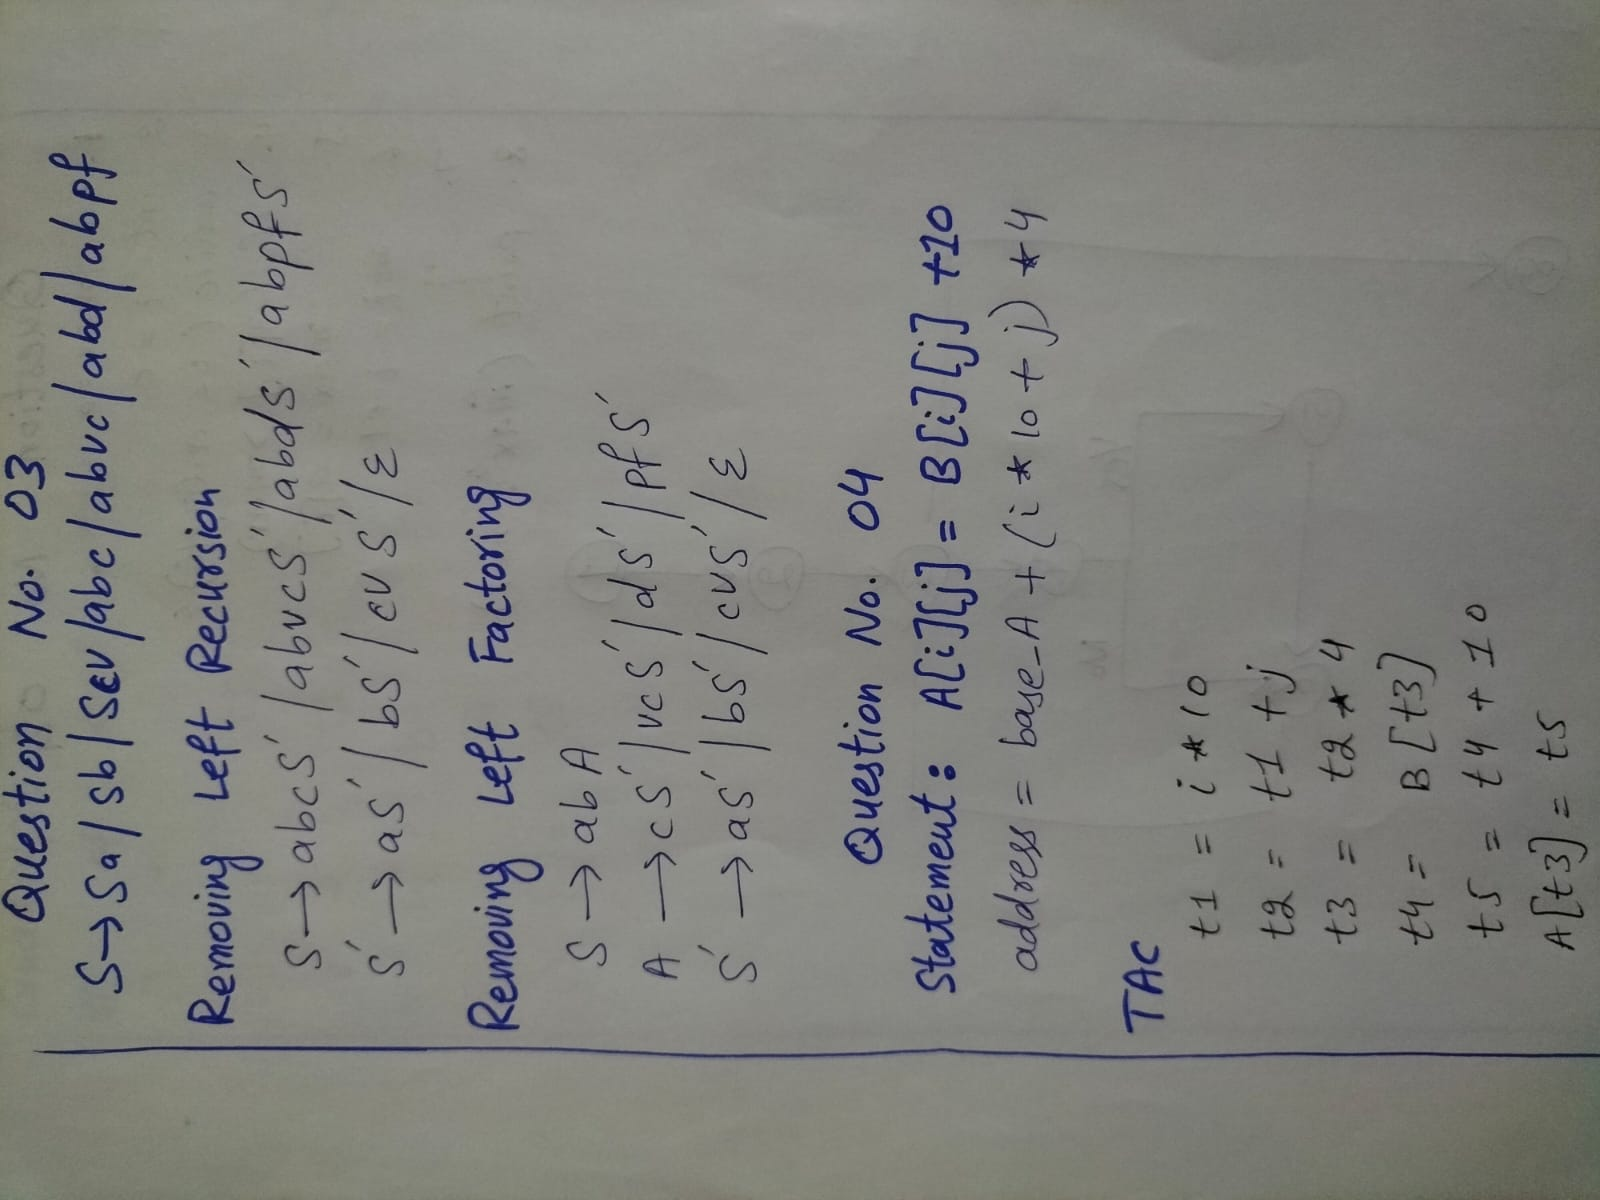 Question No. 03
S→Sa/Sb/Scv/abc/abvc/abd/abpf
Removing Left Recursion
S→abcS'/abvcS'/abdS'/abpfS'
S'→aS'/bS'/cvS'/ε
Removing Left Factoring
S→abA
A→cS'/vcS'/dS'/pfS'
S'→aS'/bS'/cvS'/ε
Question No. 04
Statement: A[i][j] = B[i][j] +10
address = base_A + (i*10+j)*4
TAC
t1 = i*10
t2 = t1 +j
t3 = t2*4
t4 = B[t3]
t5 = t4+10
A[t3] = t5